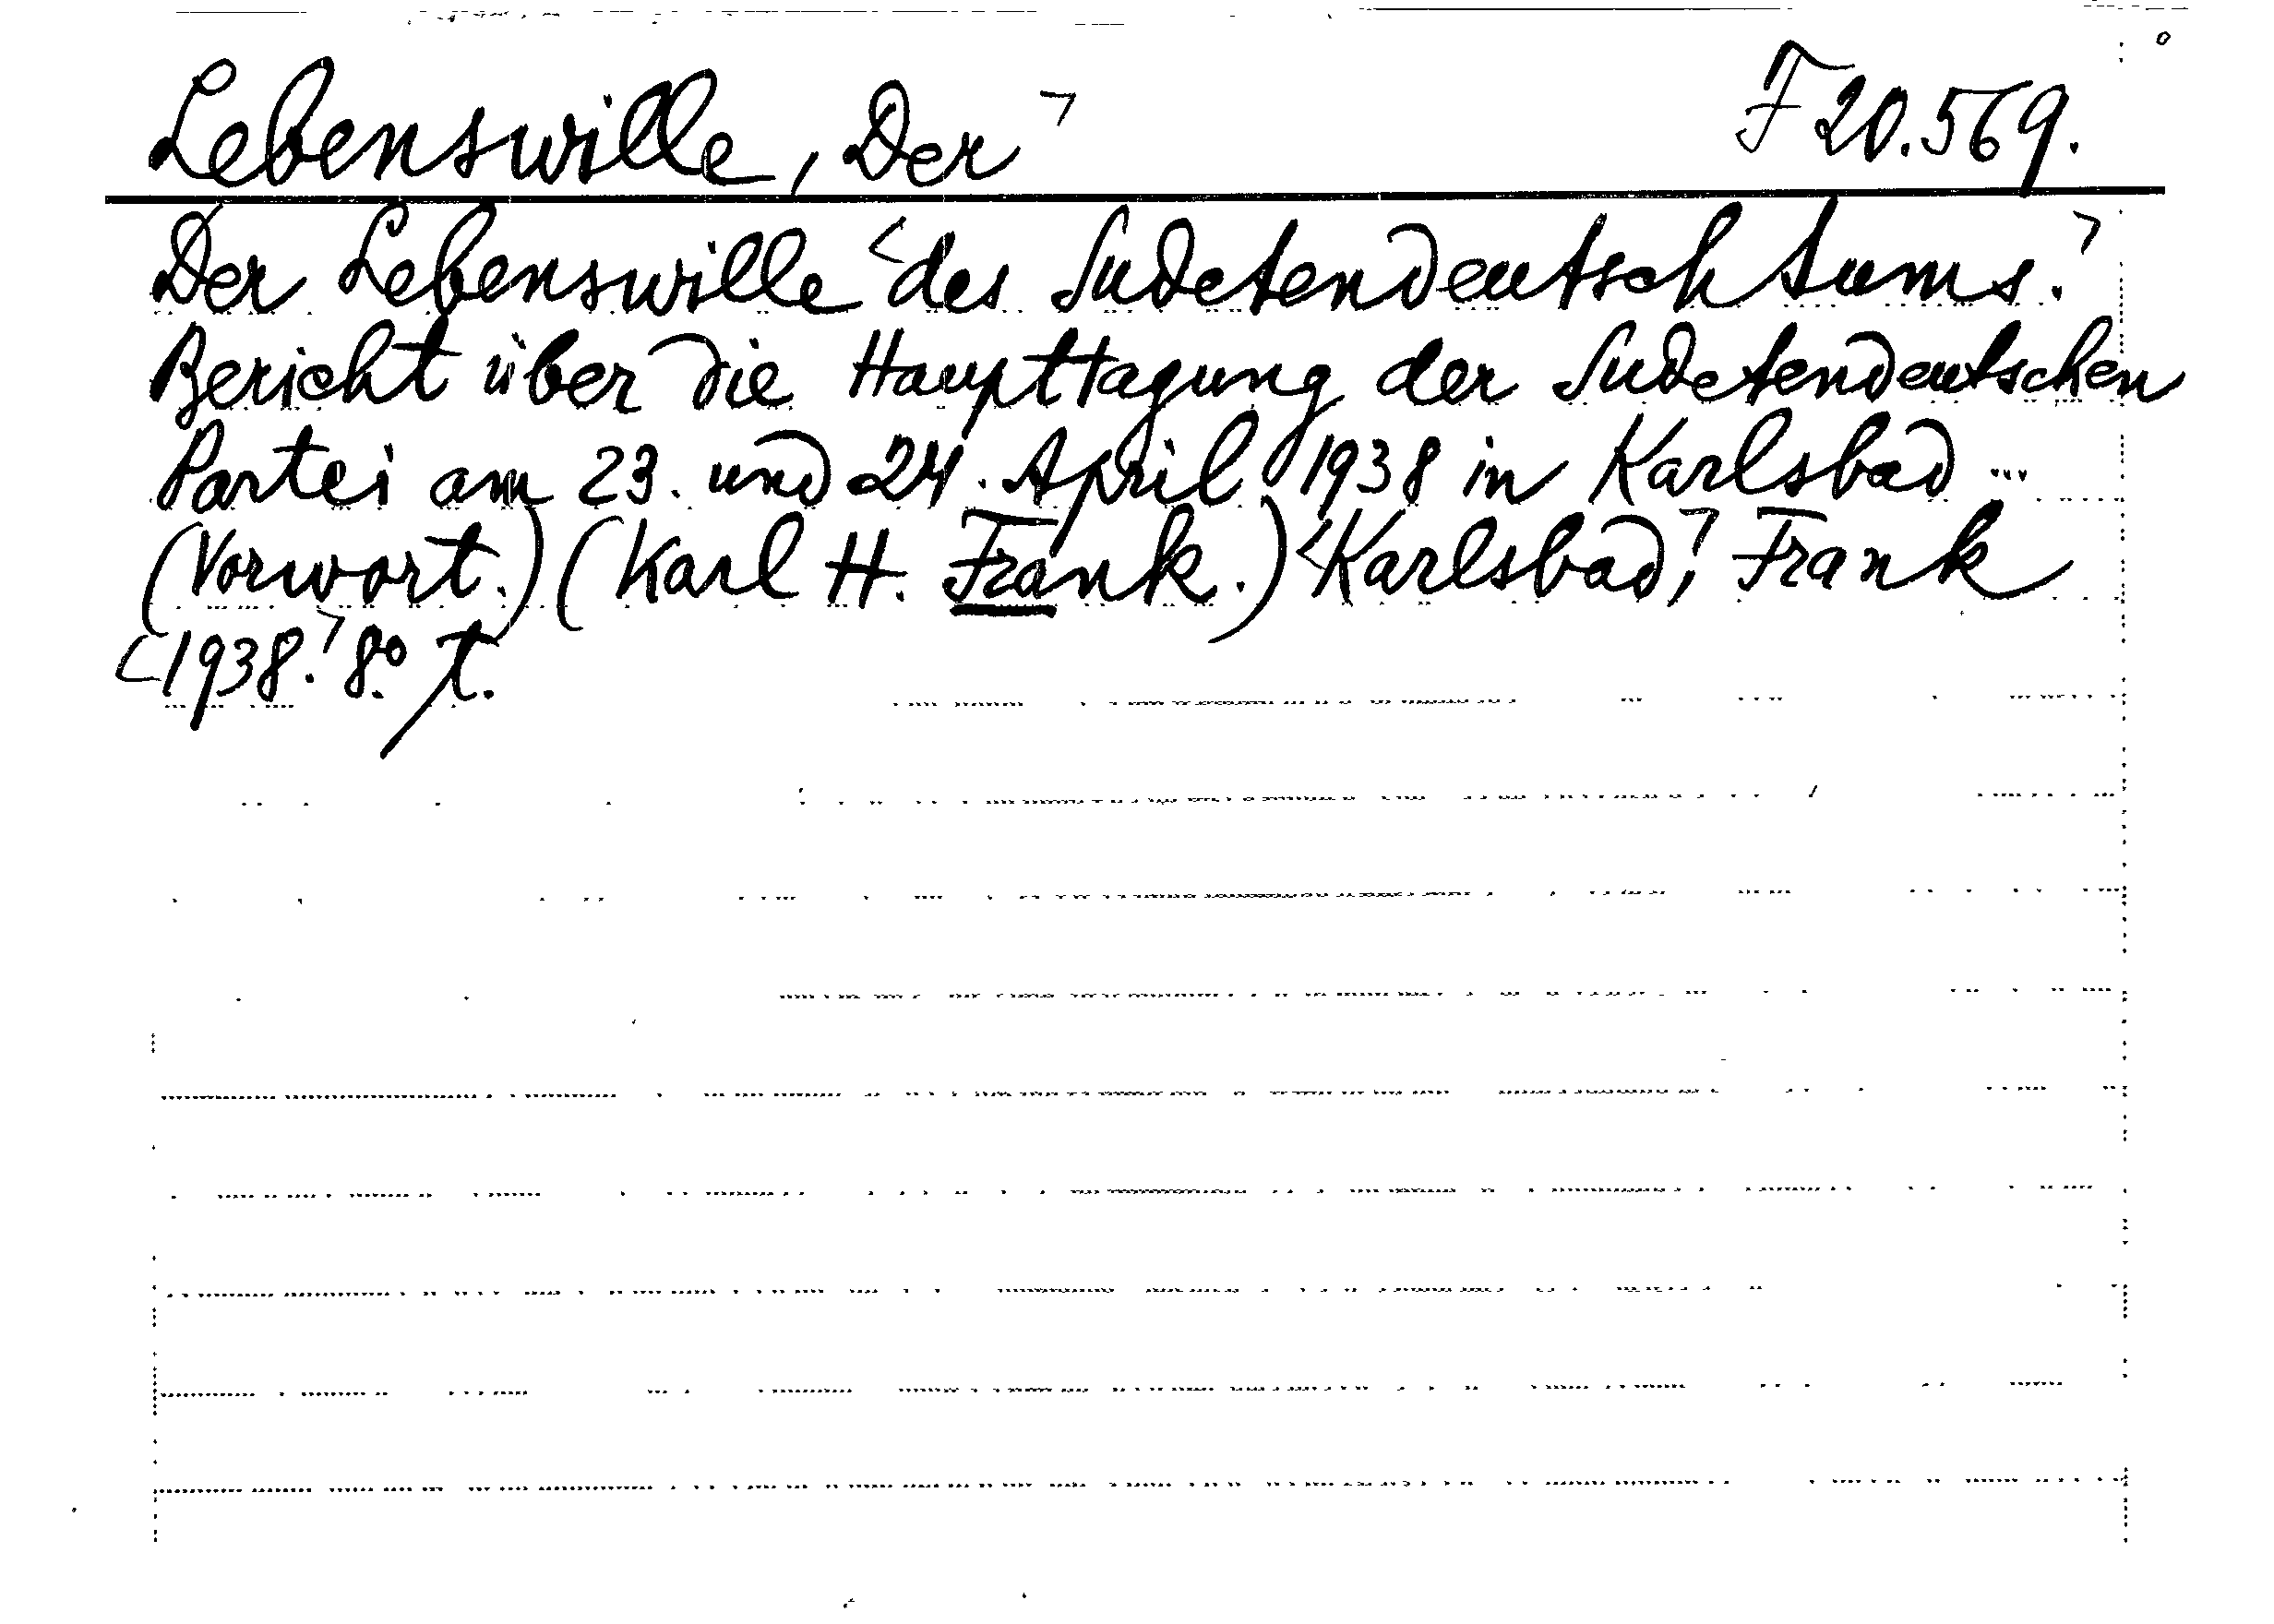 Lebenswille, Der ⌝ F 20.569.
Der Lebenswille <des Sudetendeutschtums.⌝
Bericht über die Haupttagung der Sudetendeutschen
Partei am 23. und 24. April 1938 in Karlsbad ...
(Vorwort.) (Karl H. Frank.) <Karlsbad,⌝ Frank
<1938.⌝ 8° T.